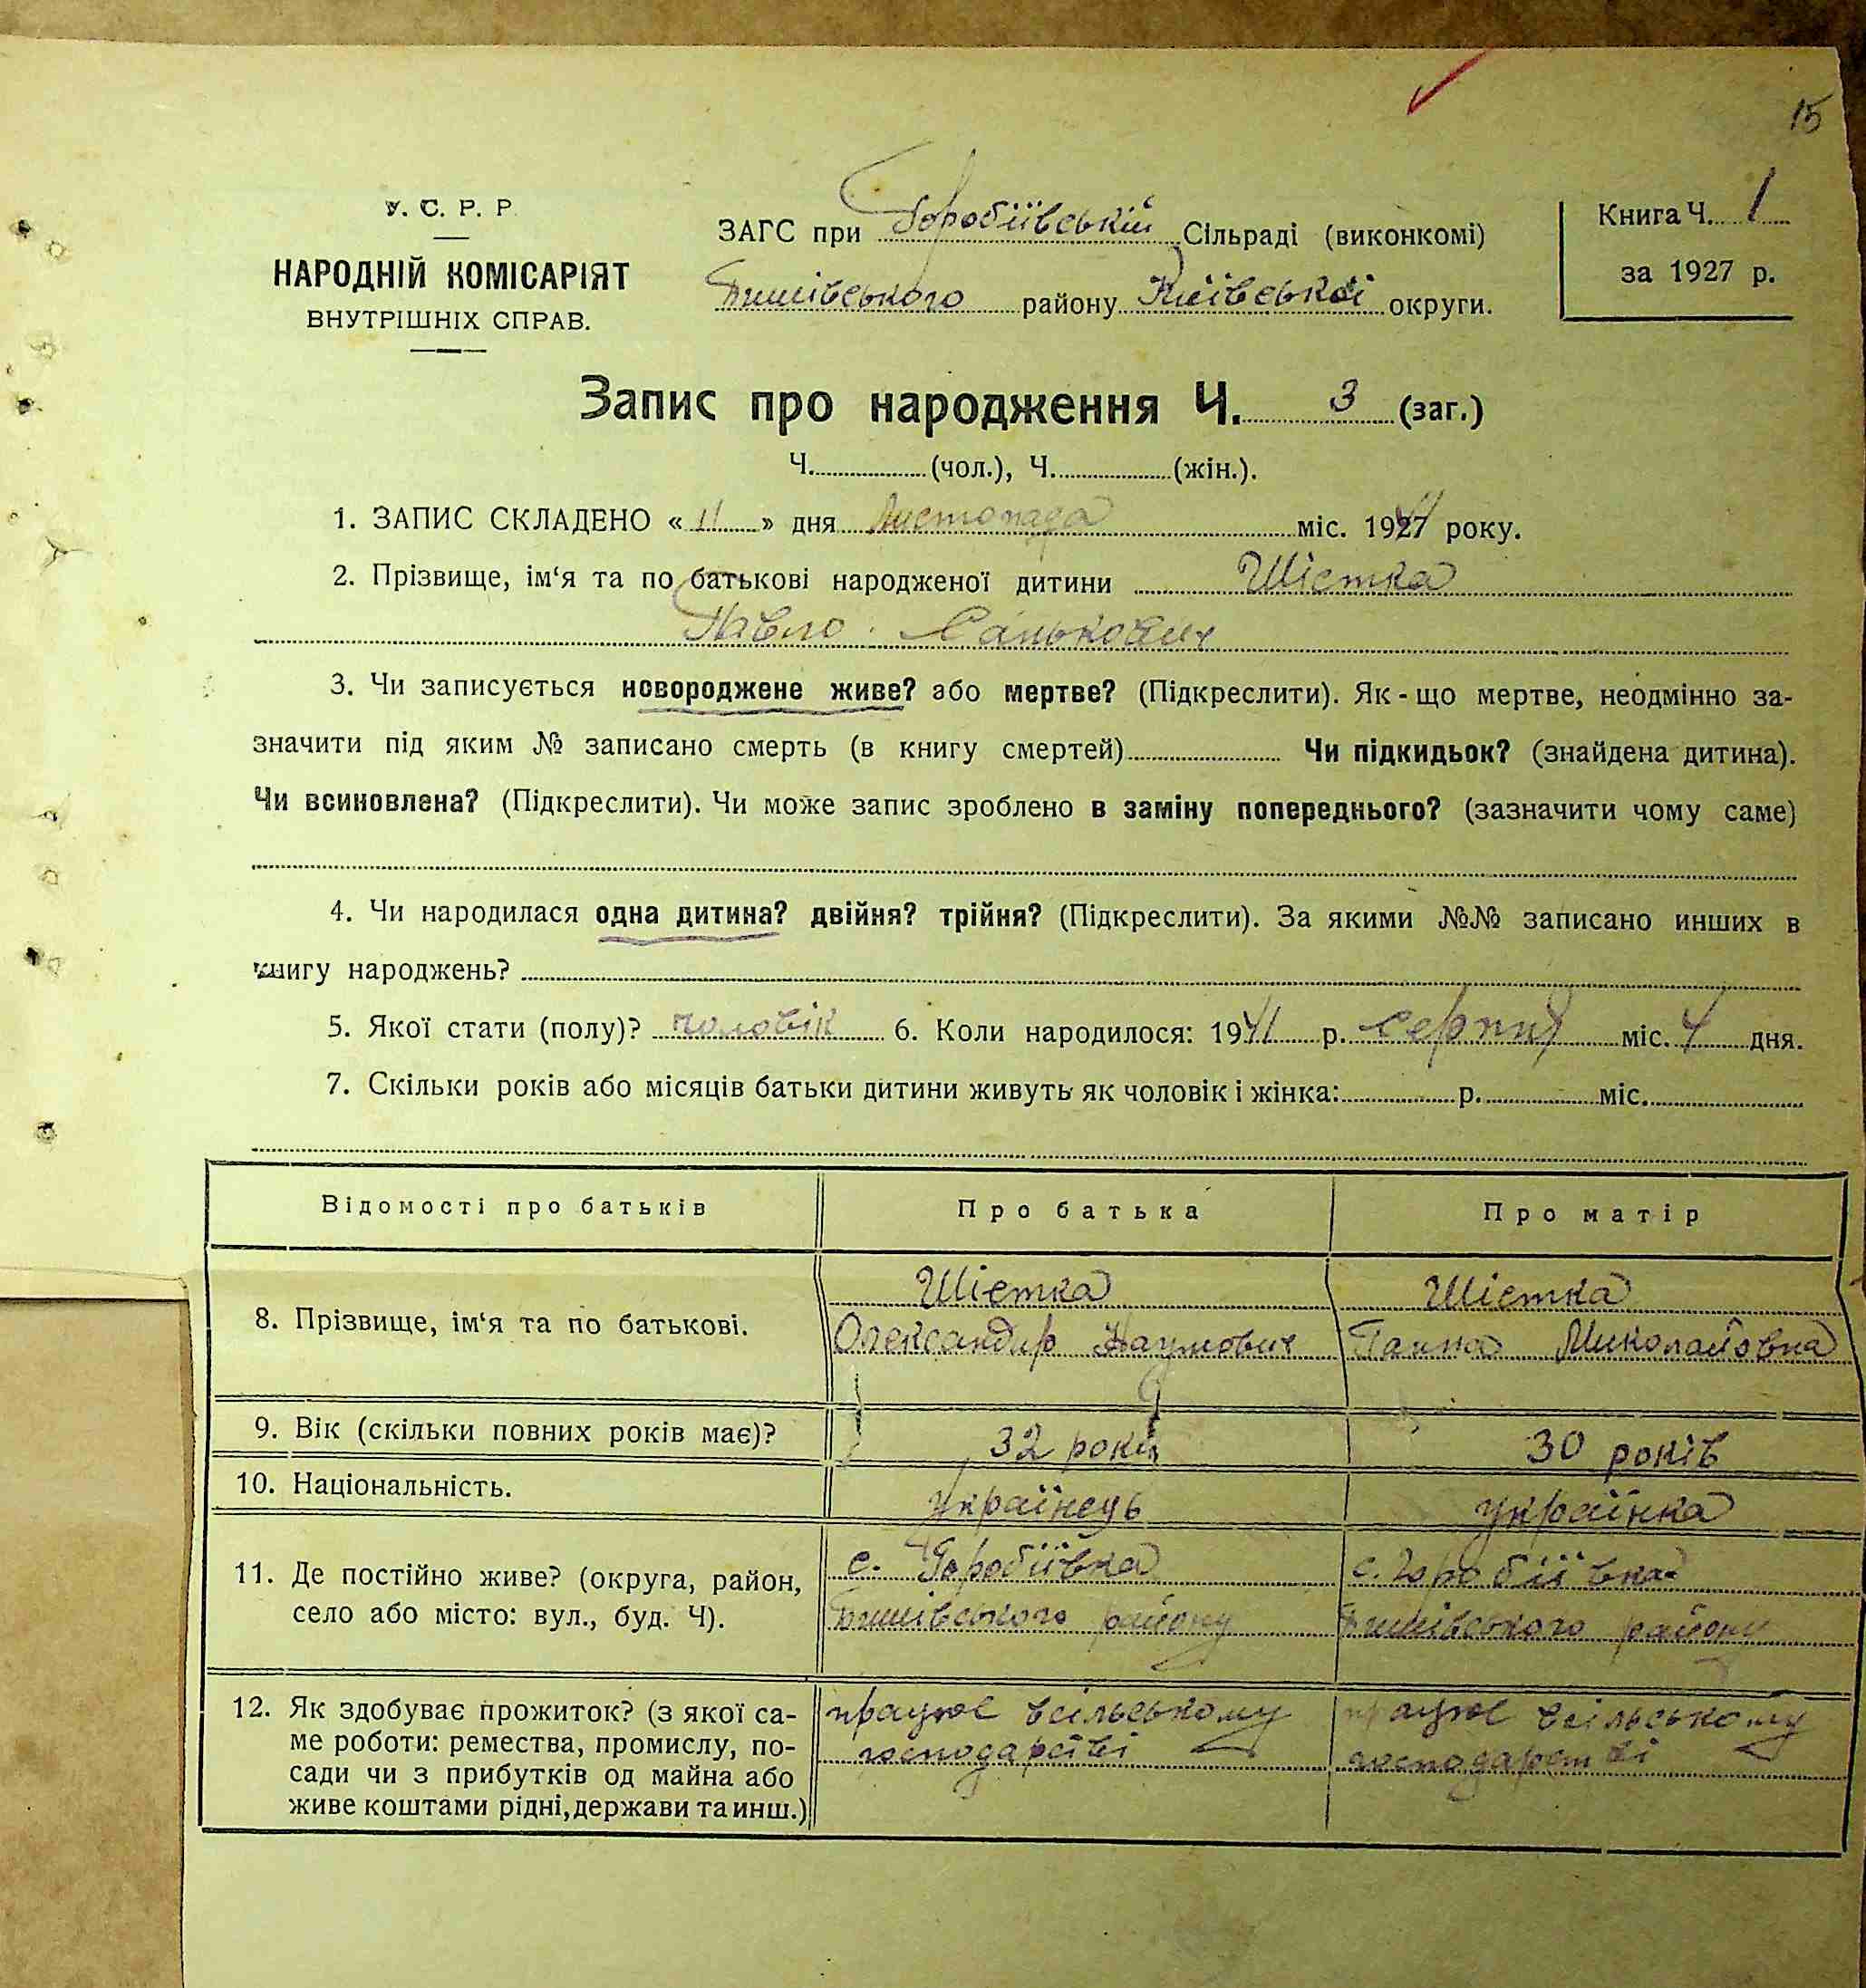 15
У. С. Р. Р.
НАРОДНІЙ КОМІСАРІЯТ
ВНУТРІШНІХ СПРАВ.
ЗАГС при Горобіївській Сільраді (виконкомі)
Бишівського району Київської округи.
Книга Ч. 1
за 1927 р.
Запис про народження Ч. 3 (заг.)
Ч. (чол.), Ч. (жін.).
1. ЗАПИС СКЛАДЕНО « 11 » дня Листопада міс. 1941 року.
2. Прізвище, ім‘я та по батькові народженої дитини Шістка
Павло Санькович
3. Чи записується новороджене живе? або мертве? (Підкреслити). Як-що мертве, неодмінно за-
значити під яким № записано смерть (в книгу смертей) Чи підкидьок? (знайдена дитина).
Чи всиновлена? (Підкреслити). Чи може запис зроблено в заміну попереднього? (зазначити чому саме)
4. Чи народилася одна дитина? двійня? трійня? (Підкреслити). За якими №№ записано инших в
книгу народжень?
5. Якої стати (полу)? чоловік 6. Коли народилося: 1941 р. Серпня міс. 4 дня.
7. Скільки років або місяців батьки дитини живуть як чоловік і жінка: р. міс.
Відомості про батьків Про батька Про матір
8. Прізвище, ім‘я та по батькові.
Шістка
Олександр Наумович
Шістка
Ганна Миколаївна
9. Вік (скільки повних років має)? 32 роки 30 років
10. Національність. українець українка
11. Де постійно живе? (округа, район,
село або місто: вул., буд. Ч).
с. Горобіївка
Бишівського району
с. Горобіївка
Бишівського району
12. Як здобуває прожиток? (з якої са-
ме роботи: ремества, промислу, по-
сади чи з прибутків од майна або
живе коштами рідні, держави та инш.)
працює всільському
господарстві
працює всільському
господарстві